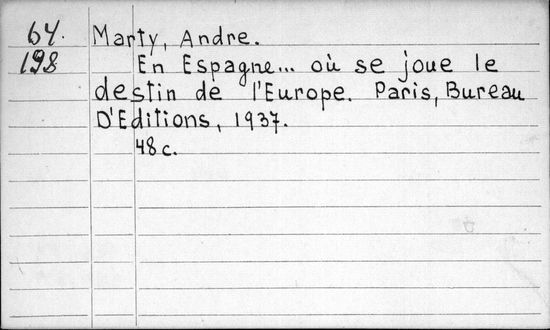 64. Marty, Andre.
198 En Espagne... où se joue le
destin de l'Europe. Paris, Bureau
D'Editions, 1937.
48 c.